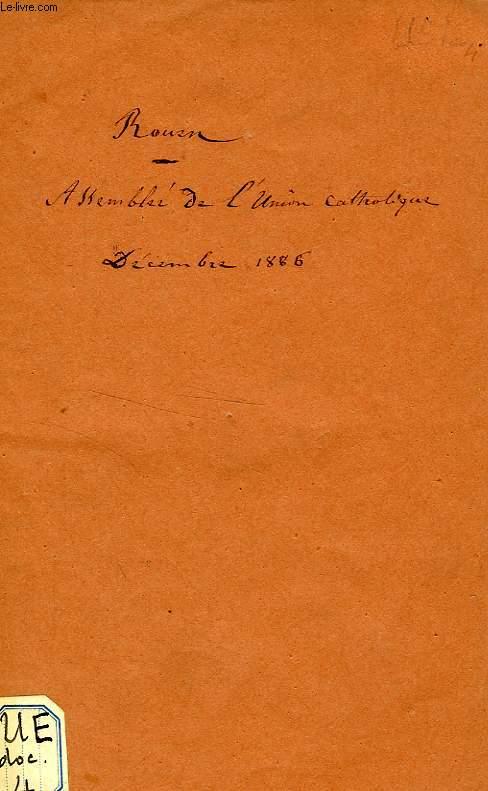 Le-livre.com
Rouen
Assemblée de l'Union catholique
Décembre 1886
UE
doc.